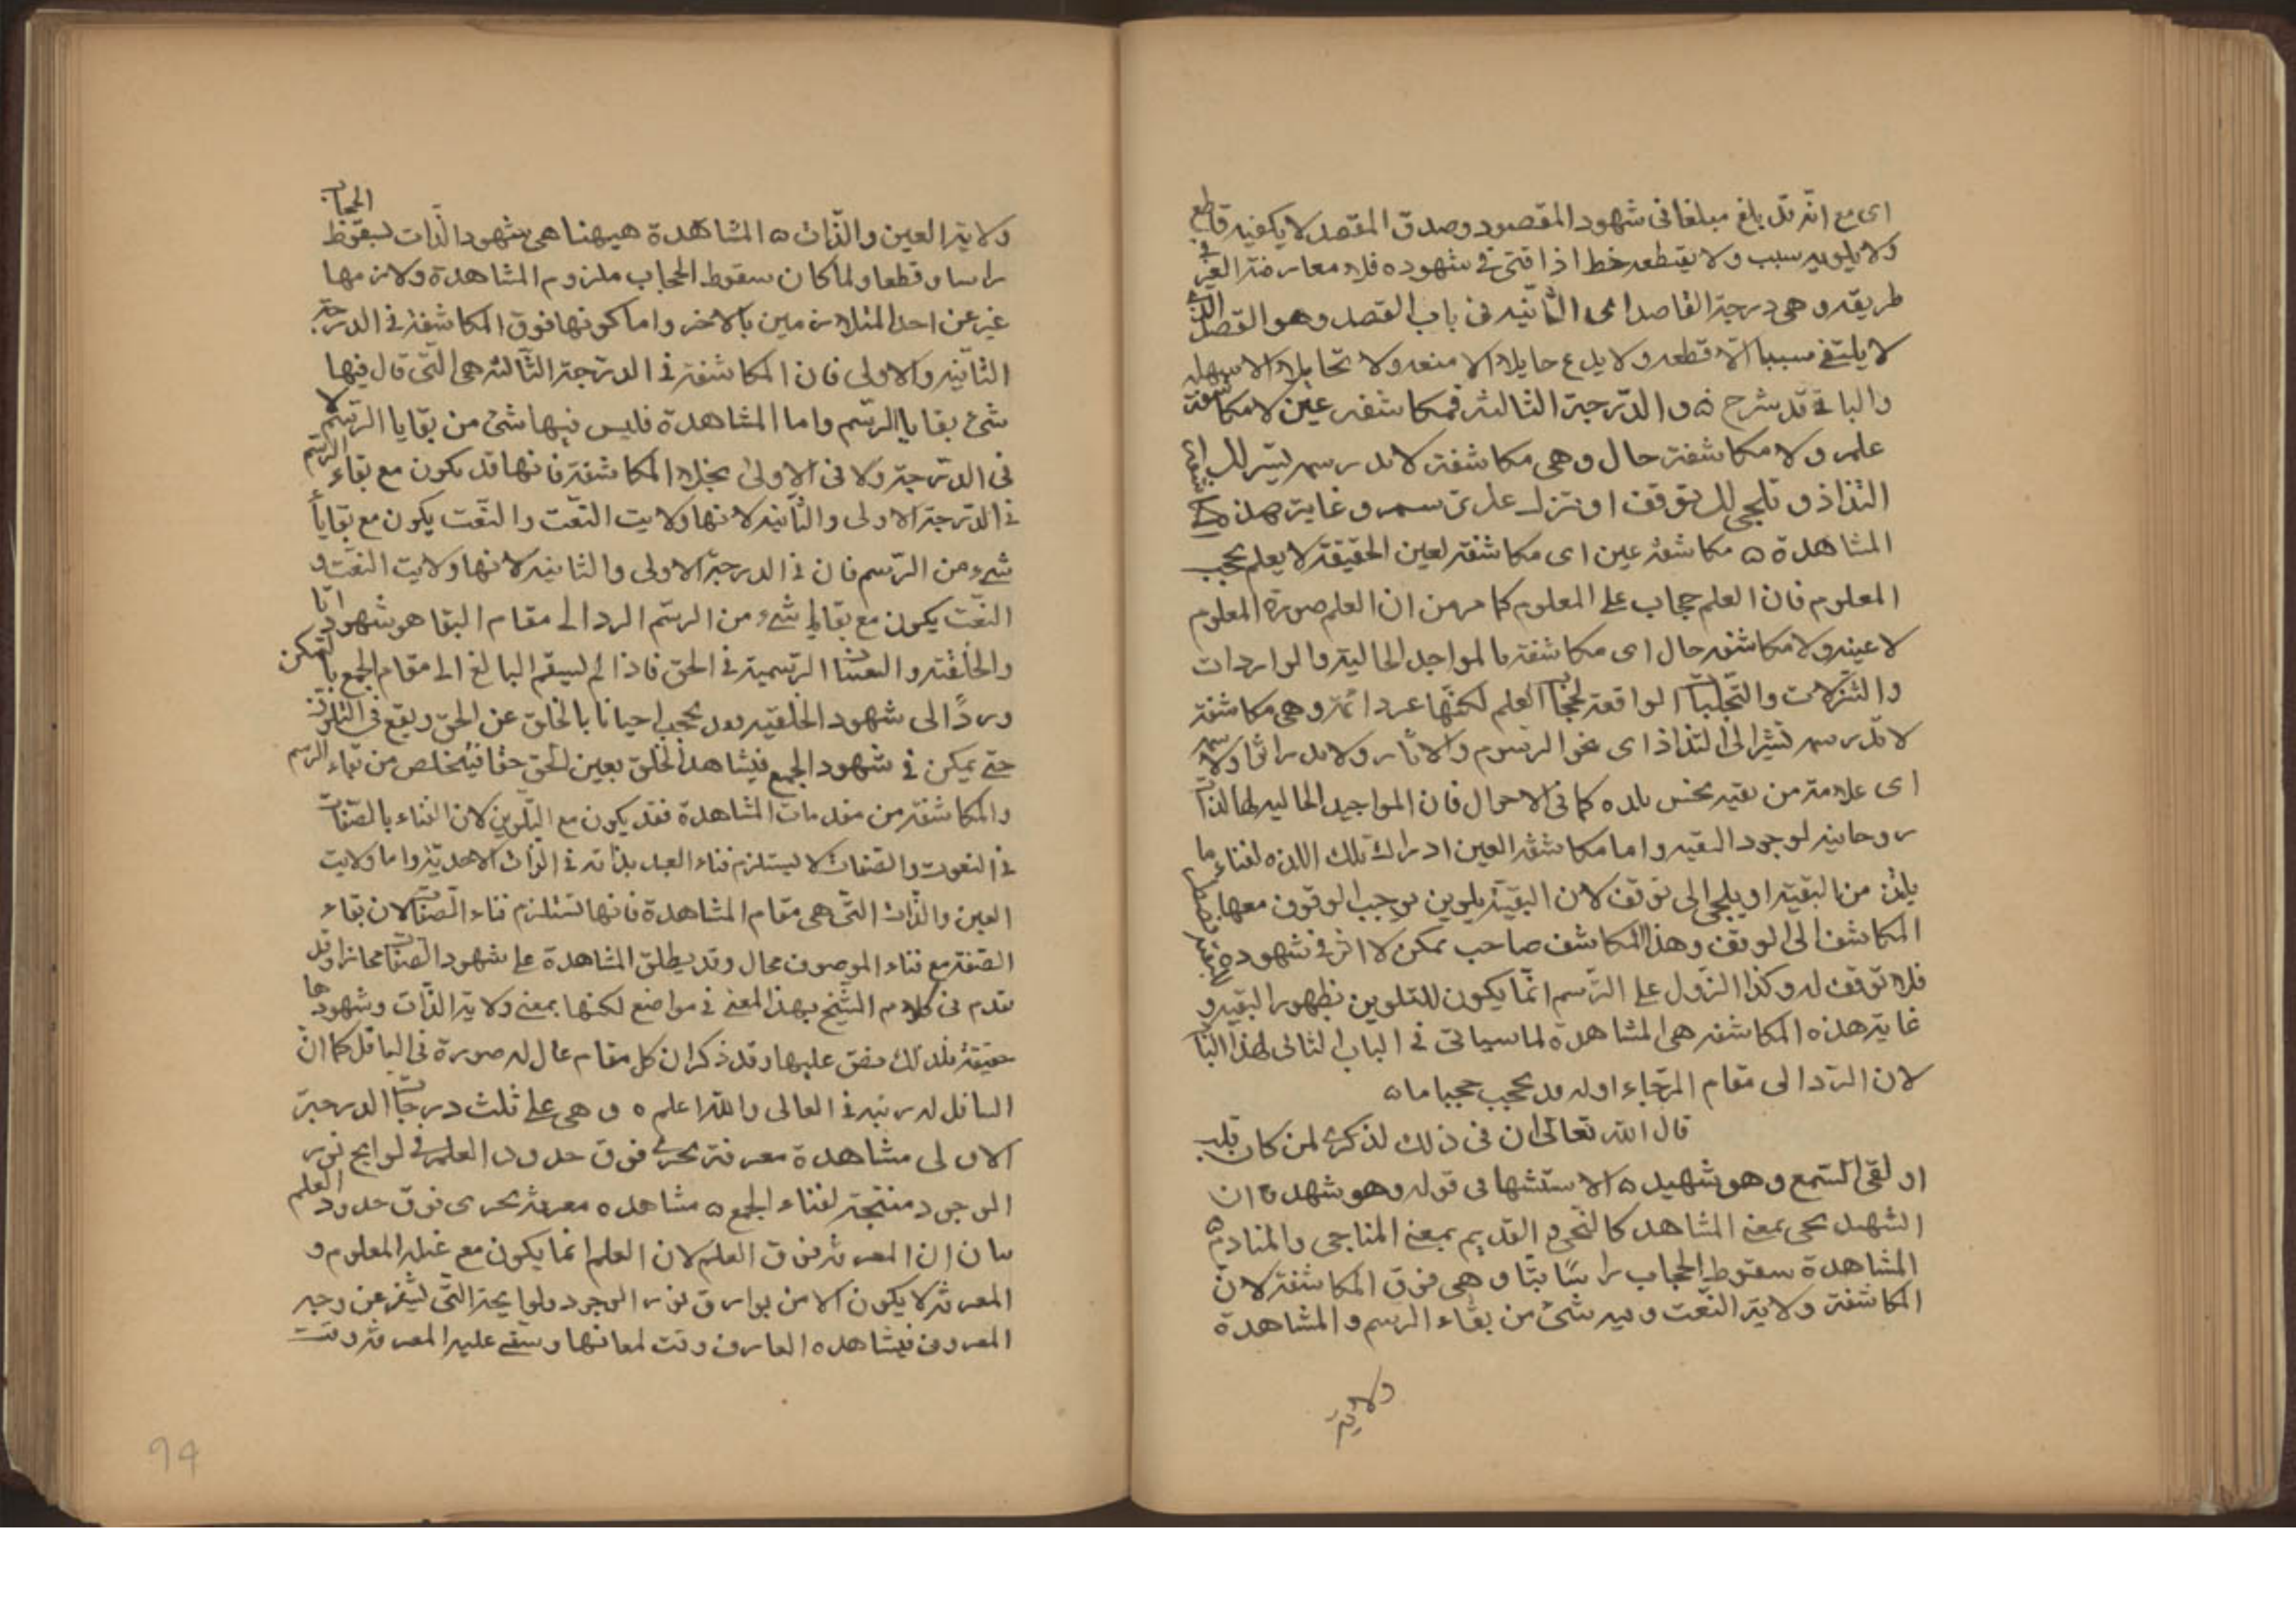 اى مع انه قد بلغ مبلغا فى شهود المقصود وصدق المقصد لا يكفيه قاطع
ولا يلويه سبب ولا يقتطعه خط اذا فتى فى شهوده فلا معارضة الغير فى
طريقه وهى درجة القاصد اى الثانيه فى باب القصد وهو القصد الذى
لا يلتقى سببا الا قطعه ولا يدع حايلا الا منعه ولا تحاملا الا سهله
والباقى قد شرح ه و الدرجة الثالثه فمكاشفه عين لا مكاشفة
علم ولا مكاشفة حال وهى مكاشفة لا تذر سمه تشير الى
التذاذ و تلجى الى توقف او تنزل على ترسم و غاية هذه المكاشفة
المشاهدة ه مكاشفة عين اى مكاشفة لعين الحقيقة لا بعلم يحجب
المعلوم فان العلم حجاب على المعلوم كما مر من ان العلم صورة المعلوم
لا عينه ولا مكاشفه حال اى مكاشفة بالمواجد الحالية والواردات
والتنزلات والتجليات الواقعة لحجاب العلم لكنها غير دائمة وهى مكاشفة
لا تذر سمه تشير الى التذاذ اى نحو الرسوم والآثار ولا تدر اثرا ولا سمه
اى علامة من بقيه يحس بلذه كما فى الاحوال فان المواجيد الحاليه لها لذات
روحانيه لوجود البقيه واما مكاشفة العين ادراك تلك اللذه لفناء ما
يلتذ من البقية او يلجى الى توقف لان البقية تلوين يوجب الوقوف معها
المكاشف الى الوقف وهذا المكاشف صاحب تمكن لا اثر فى شهوده
فلا توقف له وكذا النزول على الترسم انما يكون للتلوين بظهور البقيه و
غاية هذه المكاشفه هى المشاهدة لما سياتى فى الباب الثانى لهذا الباب
لان الرد الى مقام الرجاء اوله قد يحجب حجبا ما ه
قال الله تعالى ان فى ذلك لذكرى لمن كان له قلب
او لقى السمع وهو شهيد ه الاستشهاد فى قوله وهو شهيد فان
الشهيد يجى بمعنى المشاهد كالنجى و القديم بمعنى المناجى والمنادم ه
المشاهدة سقوط الحجاب راسا بتا و هى فوق المكاشفة لان
المكاشفة ولاية النعت وفيه شئ من بقاء الرسم و المشاهدة
ولاية
ولاية العين والذات ه المشاهدة هيهنا هى شهود الذات لسقوط الحجاب
راسا وقطعا ولما كان سقوط الحجاب ملزوم المشاهدة ولازمها
عبر عن احد المتلازمين بالاخر واما كونها فوق المكاشفة فى الدرجة
الثانيه والاولى فان المكاشفة فى الدرجة الثالثه هى التى قال فيها لا
شئ بقايا الرسم واما المشاهدة فليس فيها شئ من بقايا الرسم
فى الدرجة ولا فى الاولى بخلاف المكاشفة فانها قد يكون مع بقاء الرسم
فى الدرجة الاولى والثانيه لانها ولايت النعت والنعت يكون مع بقايا
شىء من الرسم فان فى الدرجة الاولى والثانيه لانها ولايت النعت و
النعت يكون مع بقايا شىء من الرسم الرد الى مقام البقا هو شهود انا
والخلقته و التعينات الرسمية فى الحق فاذا لم يستقم البالغ الى مقام الجمع بالتمكن
ورد الى شهود الخلقيه فقد يحجب احيانا بالخلق عن الحق ويقع فى التلوين
حتى يمكن فى شهود الجمع فيشاهد الخلق بعين الحق حقا فيتخلص من بقاء الرسم
والمكاشفة من مقدمات المشاهدة فقد يكون مع التلوين لان الفناء بالصفات
فى النعوت والصفات لا يستلزم فناء العبد بذاته فى الذات الاحدية واما ولايت
العين والذات التى هى مقام المشاهدة فانها تستلزم فناء الصفات لان بقاء
الصفة مع فناء الموصوف محال وقد يطلق المشاهدة على شهود الصفات مجازا وقد
تقدم فى كلام الشيخ بهذا المعنى فى مواضع لكنها بمعنى ولاية الذات وشهودها
حقيقة فلذلك نص عليها وقد ذكر ان كل مقام عال له صورة فى السافل كما ان
السافل له رتبه فى العالى والله اعلم ه و هى على ثلث درجات الدرجة
الاولى مشاهدة معرفة تجرى فوق حدود العلم فى لوايح نور
الوجود منتجة لفناء الجمع ه مشاهده معرفة تجرى فوق حدود العلم
بيان ان المعرفة فوق العلم لان العلم انما يكون مع غيبة المعلوم و
المعرفة لا يكون الا من بوارق نور الوجود ولوايحه التى تسفر عن وجه
المعروف فيشاهده العارف وقت لمعانها وستقى عليه المعرفة وقت
94